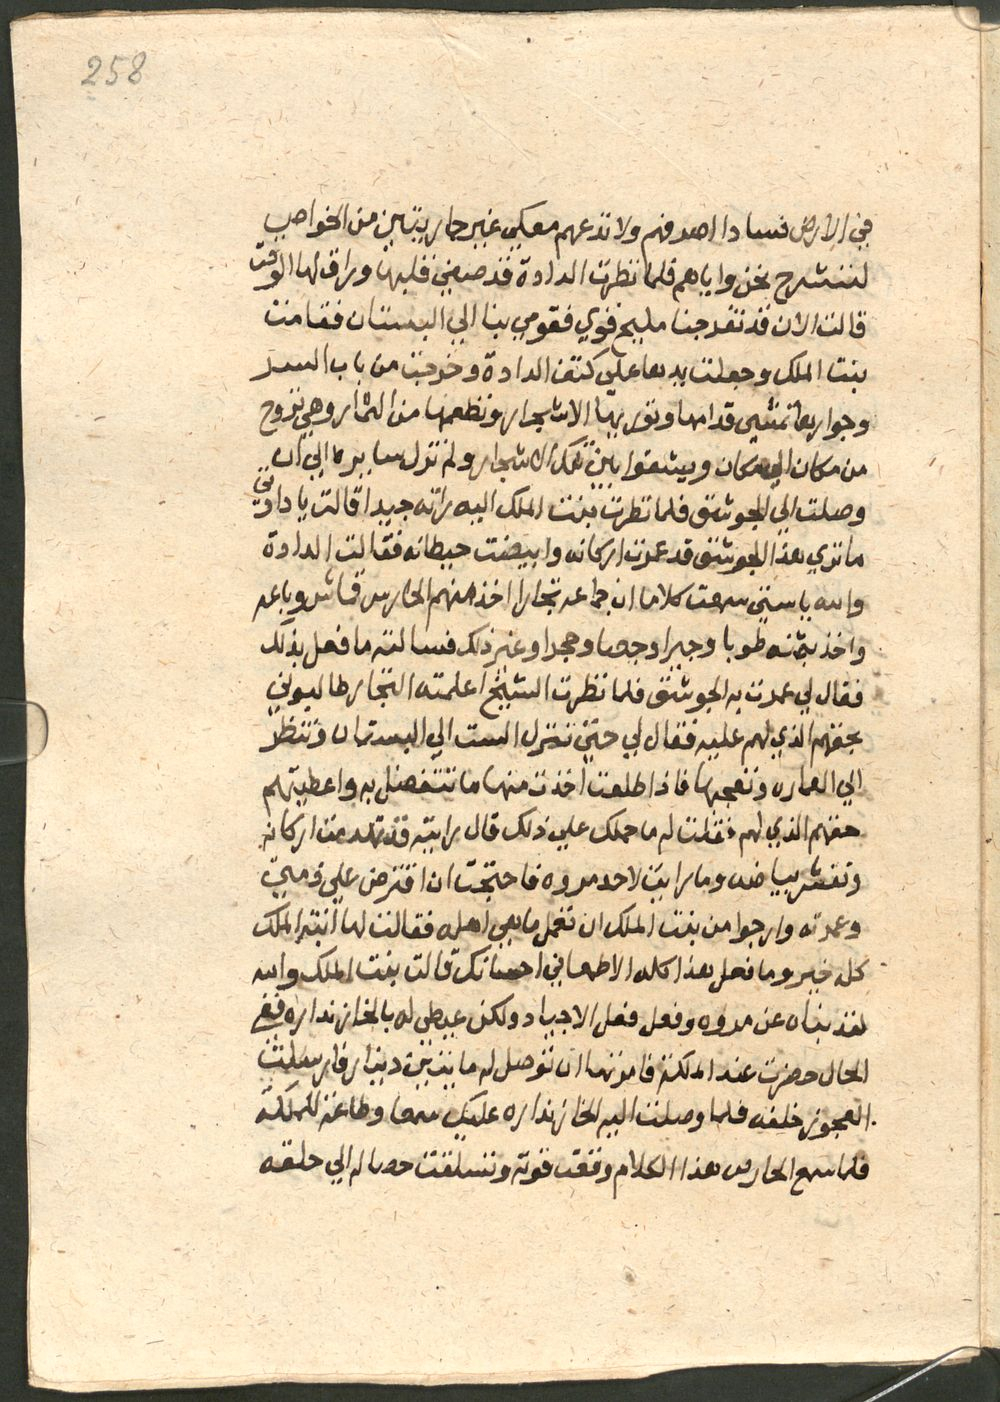 258
في الارض فسادا اصرفهم ولا تدعهم معكي غير جاريتين من الخواص
لننشرح نحن واياهم فلما نظرت الدادة قد صغي قلبها وراق لها الوقت
قالت الان قد تفرجنا مليح قوي فقومي بنا الي البستان فقامت
بنت الملك وجعلت يدها علي كتف الدادة وخرجت من باب السر
وجوارها تمشي قدامها وتوريها الاشجار وتطعمها من الثمار وهي تروح
من مكان الي مكان ويشقوا بين تلك الاشجار ولم تزل سايره الي ان
وصلت الي الجوشق فلما نظرت بنت الملك اليه راته جديدا قالت يا دادتي
ما تري هذا الجوشق قد عمرت اركانه وابيضت حيطانه فقالت الدادة
والله يا ستي سمعت كلاما ان جماعه تجارا اخذ منهم الحارس قماش وباعه
واخذ بثمنه طوبا وجيرا وجصا وحجرا وغير ذلك فسالته ما فعل بذلك
فقال لي عمرت به الجوشق فلما نظرت الشيخ اعلمته التجار طالبوني
بحقهم الذي لهم عليه فقال لي حتي تنزل الست الي البستان وتنظر
الي العماره وتعجبها فاذا طلعت اخذت منها ما تتفضل به واعطيتهم
حقهم الذي لهم فقلت له ما حملك علي ذلك قال رايته قد تهدمت اركانه
وتقشر بياضه وما رايت لاحد مروه فاحتجت ان اقترض علي ذمتي
وعمرته وارجوا من بنت الملك ان تعمل ما هي اهله فقالت لها ابنة الملك
كل خير وما فعل هذا كله الا طمعا في احسانك قالت بنت الملك والله
لقد بناه عن مروه وفعل فعل الاجياد ولكن عيطي له بالخازنداره ففي
الحال حضرت عند الملكة فامرتها ان توصل له مايتين دينار فارسلت
العجوز خلفه فلما وصلت اليه الخازنداره عليك سمعا وطاعة للملكة
فلما سمع الحارس هذا الكلام وقفت قوته وتسلقت حصاله الي حلقه